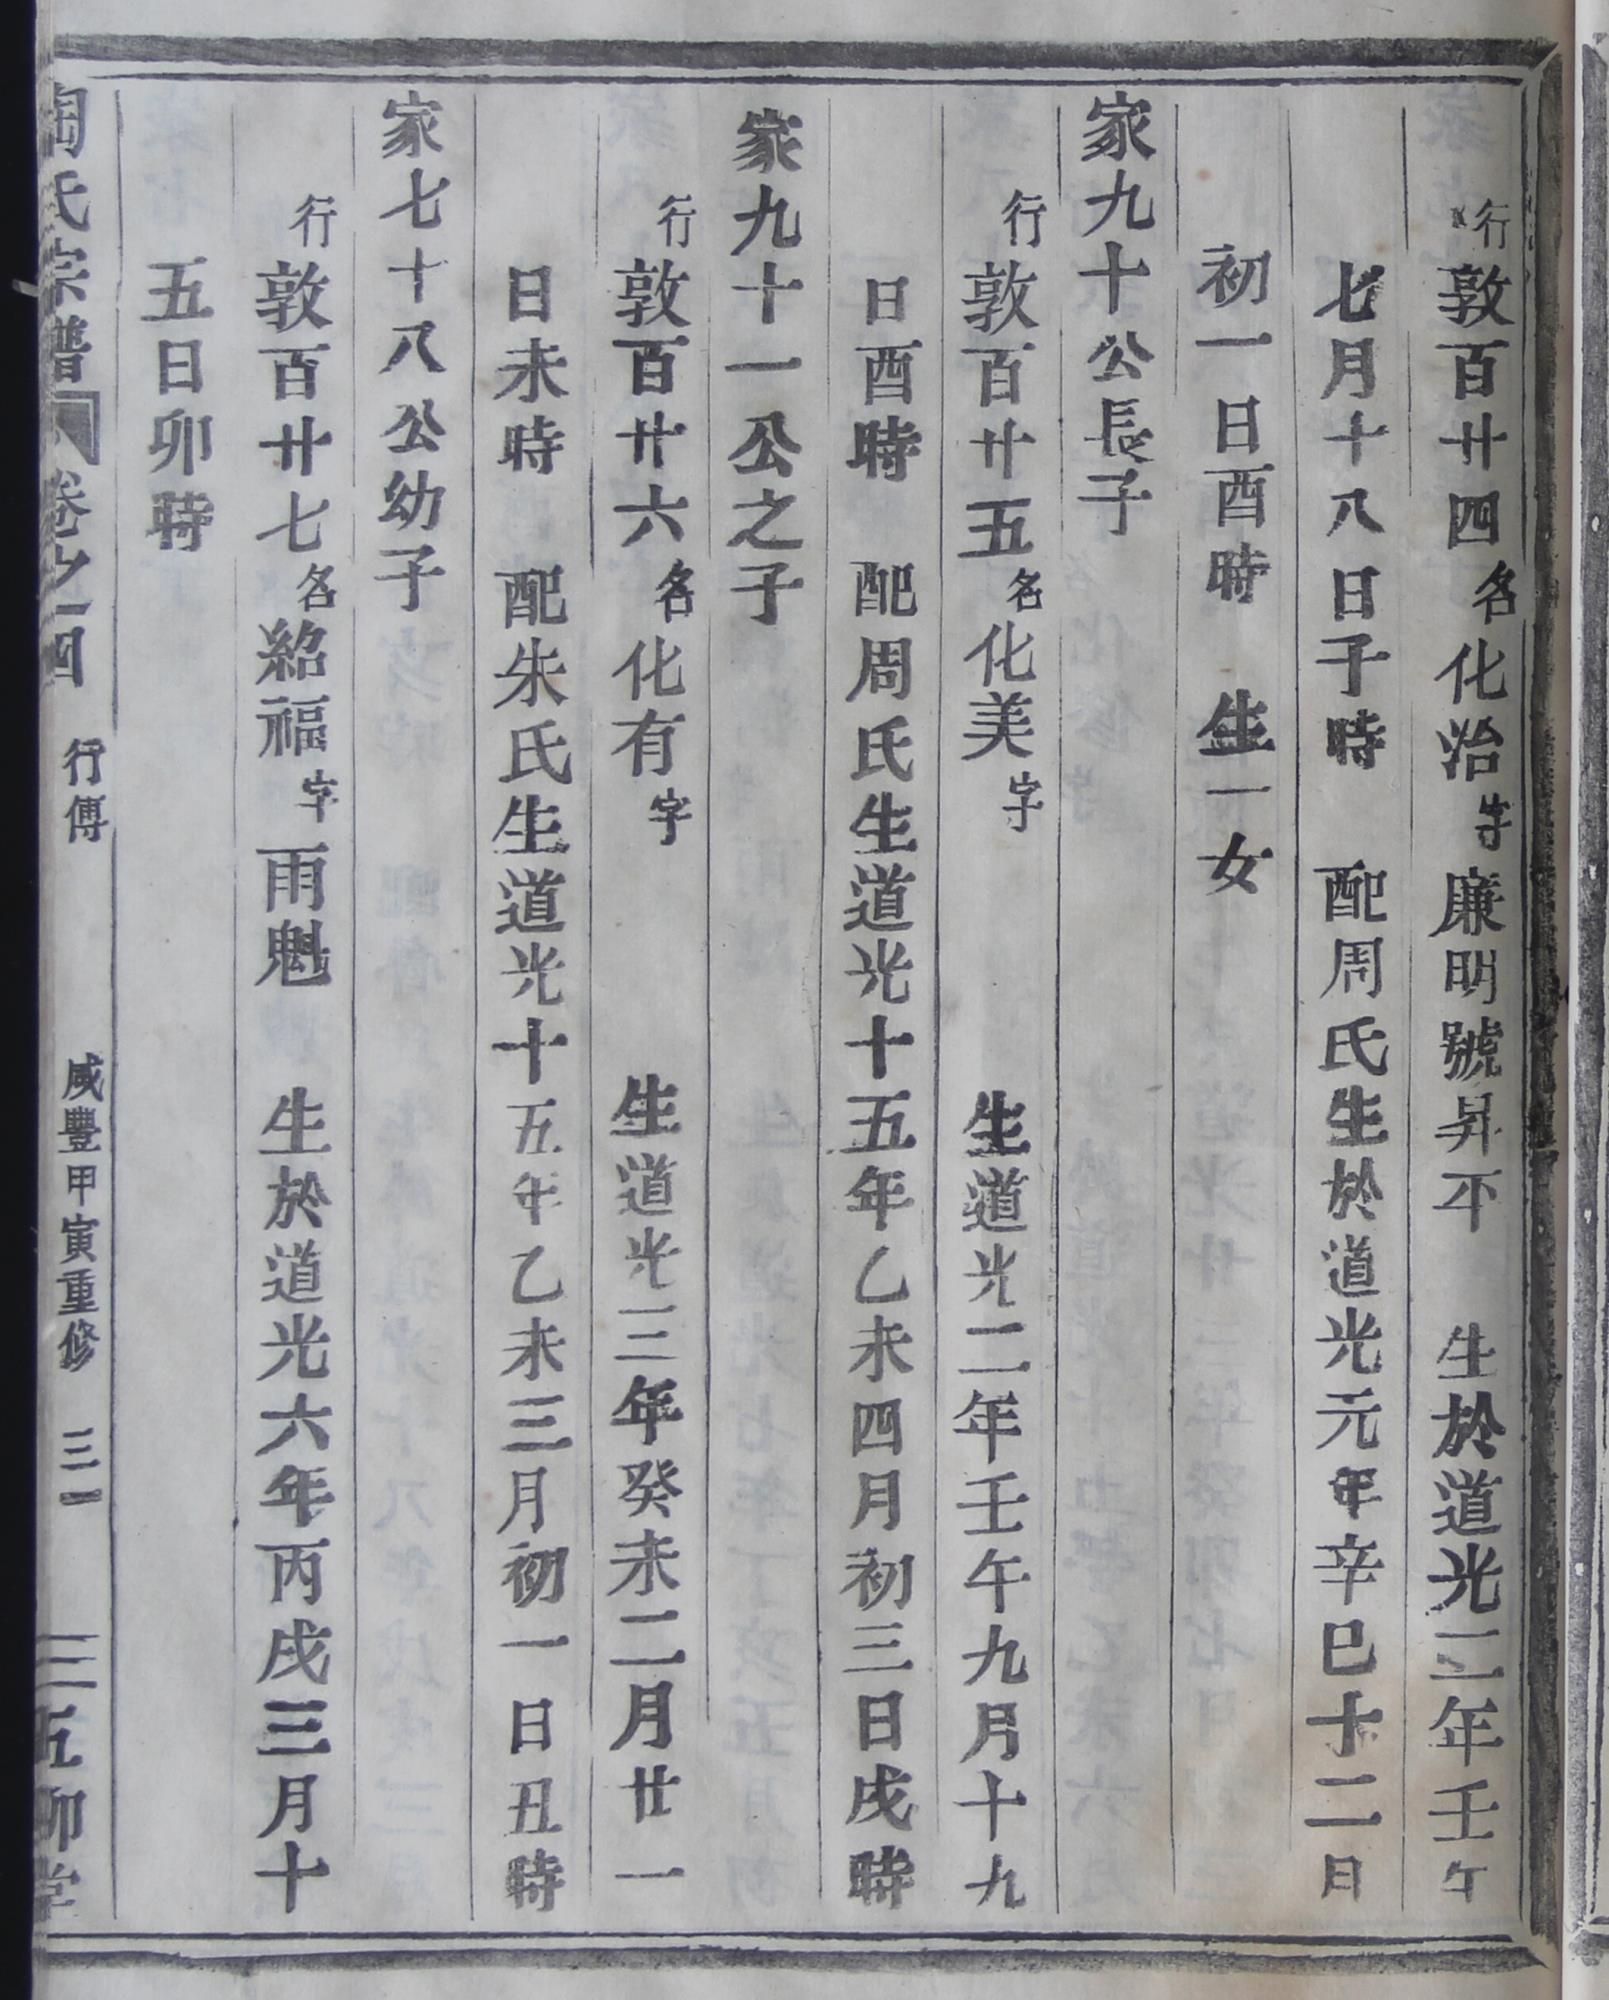 行敦百廿四名化治字廉明號昇平 生於道光二年壬午
七月十八日子時 配周氏生於道光元年辛巳十二月
初一日酉時 生一女
家九十公長子
行敦百廿五名化美字 生道光二年壬午九月十九
日酉時 配周氏生道光十五年乙未四月初三日戌時
家九十一公之子
行敦百廿六名化有字 生道光三年癸未二月廿一
日未時 配朱氏生道光十五年乙未三月初一日丑時
家七十八公幼子
行敦百廿七名紹福字雨魁 生於道光六年丙戌三月十
五日卯時
陶氏宗譜 卷之四 行傳 咸豐甲寅重修 三一 五柳堂